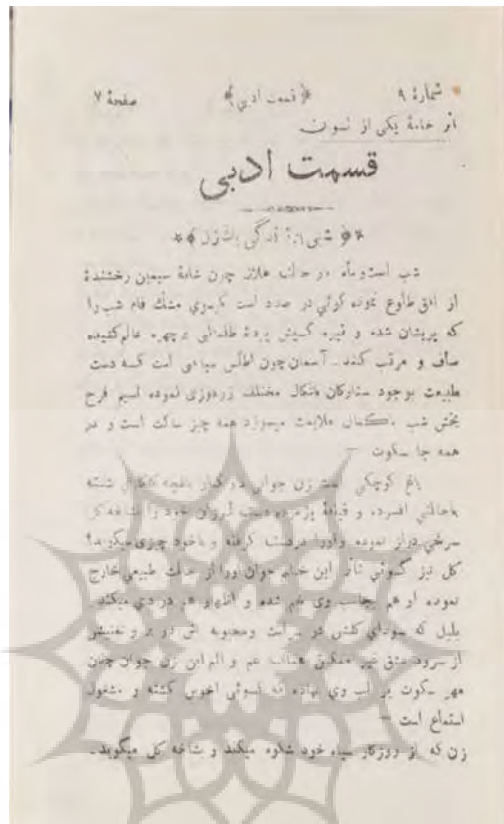 شمارهٔ ۹ ﴿ قسمت ادبی ﴾ صفحهٔ ۷
اثر خامهٔ یکی از نسوان
قسمت ادبی
﴿ شبی از زندگی یک زن ﴾
شب است و ماه در حالت هلالی چون خامهٔ سیمین رخشندهٔ
از افق طلوع نموده گوئی در صدد است گیسوی مشك فام شب را
که پریشان شده و قیره گیسیش پردهٔ ظلمانی بر چهره عالم کشیده
صاف و مرتب کند . آسمان چون اطلس سیاهی است که دست
طبیعت بوجود ستارگان باشکال مختلف زردوزی نموده نسیم فرح
بخش شب با کمال ملایمت میوزد همه چیز ساکت است و در
همه جا سکوت —
باغ کوچکی است زن جوانی در کنار باغچه گلکاری نشسته
باحالتی افسرده و قیافهٔ پژمرده دست لرزان خود را بشاخه گل
سرخی دراز نموده و اورا در دست گرفته و باخود چیزی میگوید؟
گل نیز گوئی تأثر این خانم جوان اورا از حالت طبیعی خارج
نموده او هم بجانب وی خم شده و اظهار هم دردی میکند .
بلبل که سودای گلش در سر است ومحبوبه اش در بر و تغنیش
از سرود عشق غیر ممکن هنالك غم و الم این زن جوان چنان
مهر سکوت بر لب وی نهاده که گوئی اخرس گشته و مشغول
استماع است —
زن که از روزگار سیاه خود شکوه میکند و بشاخه گل میگوید .